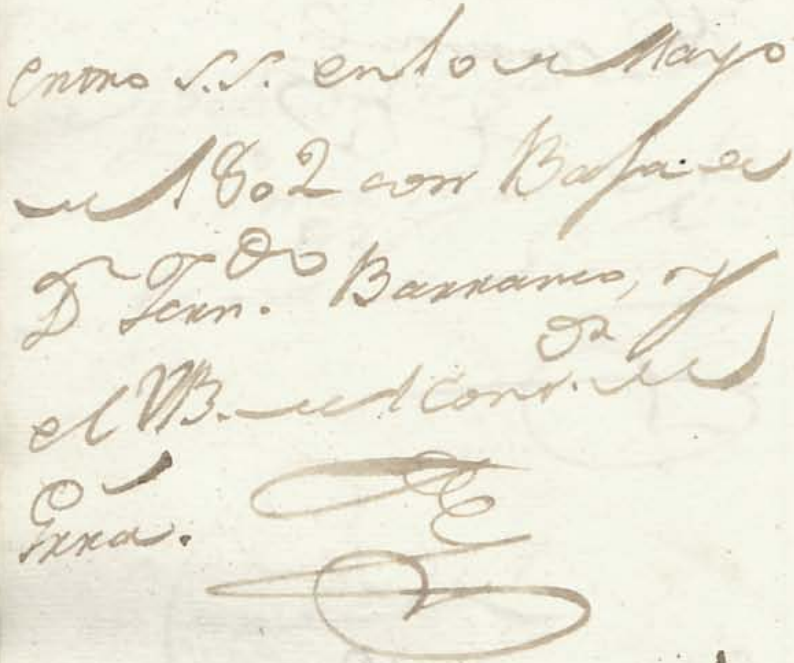 Entro S.S. en 10 de Mayo
de 1802 con Baja de
Dn Fern.do Barranco, y
el VB. del Cont.or de
Grra.